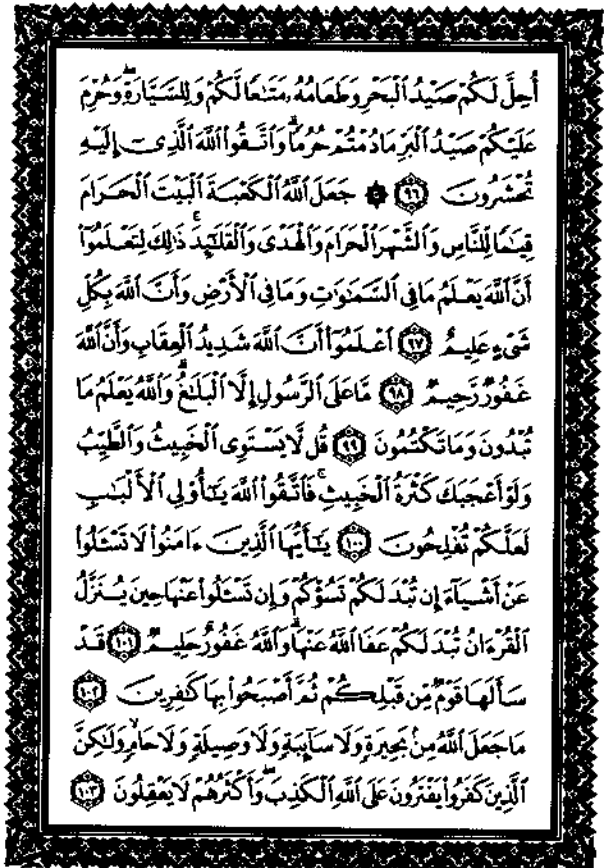 أُحِلَّ لَكُمْ صَيْدُ ٱلْبَحْرِ وَطَعَامُهُۥ مَتَٰعًا لَّكُمْ وَلِلسَّيَّارَةِۖ وَحُرِّمَ
عَلَيْكُمْ صَيْدُ ٱلْبَرِّ مَا دُمْتُمْ حُرُمًاۗ وَٱتَّقُوا۟ ٱللَّهَ ٱلَّذِىٓ إِلَيْهِ
تُحْشَرُونَ ۝٩٦ ۞ جَعَلَ ٱللَّهُ ٱلْكَعْبَةَ ٱلْبَيْتَ ٱلْحَرَامَ
قِيَٰمًا لِّلنَّاسِ وَٱلشَّهْرَ ٱلْحَرَامَ وَٱلْهَدْىَ وَٱلْقَلَٰٓئِدَۚ ذَٰلِكَ لِتَعْلَمُوٓا۟
أَنَّ ٱللَّهَ يَعْلَمُ مَا فِى ٱلسَّمَٰوَٰتِ وَمَا فِى ٱلْأَرْضِ وَأَنَّ ٱللَّهَ بِكُلِّ
شَىْءٍ عَلِيمٌ ۝٩٧ ٱعْلَمُوٓا۟ أَنَّ ٱللَّهَ شَدِيدُ ٱلْعِقَابِ وَأَنَّ ٱللَّهَ
غَفُورٌ رَّحِيمٌ ۝٩٨ مَّا عَلَى ٱلرَّسُولِ إِلَّا ٱلْبَلَٰغُۗ وَٱللَّهُ يَعْلَمُ مَا
تُبْدُونَ وَمَا تَكْتُمُونَ ۝٩٩ قُل لَّا يَسْتَوِى ٱلْخَبِيثُ وَٱلطَّيِّبُ
وَلَوْ أَعْجَبَكَ كَثْرَةُ ٱلْخَبِيثِۚ فَٱتَّقُوا۟ ٱللَّهَ يَٰٓأُو۟لِى ٱلْأَلْبَٰبِ
لَعَلَّكُمْ تُفْلِحُونَ ۝١٠٠ يَٰٓأَيُّهَا ٱلَّذِينَ ءَامَنُوا۟ لَا تَسْـَٔلُوا۟
عَنْ أَشْيَآءَ إِن تُبْدَ لَكُمْ تَسُؤْكُمْ وَإِن تَسْـَٔلُوا۟ عَنْهَا حِينَ يُنَزَّلُ
ٱلْقُرْءَانُ تُبْدَ لَكُمْ عَفَا ٱللَّهُ عَنْهَاۗ وَٱللَّهُ غَفُورٌ حَلِيمٌ ۝١٠١ قَدْ
سَأَلَهَا قَوْمٌ مِّن قَبْلِكُمْ ثُمَّ أَصْبَحُوا۟ بِهَا كَٰفِرِينَ ۝١٠٢
مَا جَعَلَ ٱللَّهُ مِنۢ بَحِيرَةٍ وَلَا سَآئِبَةٍ وَلَا وَصِيلَةٍ وَلَا حَامٍۙ وَلَٰكِنَّ
ٱلَّذِينَ كَفَرُوا۟ يَفْتَرُونَ عَلَى ٱللَّهِ ٱلْكَذِبَۖ وَأَكْثَرُهُمْ لَا يَعْقِلُونَ ۝١٠٣